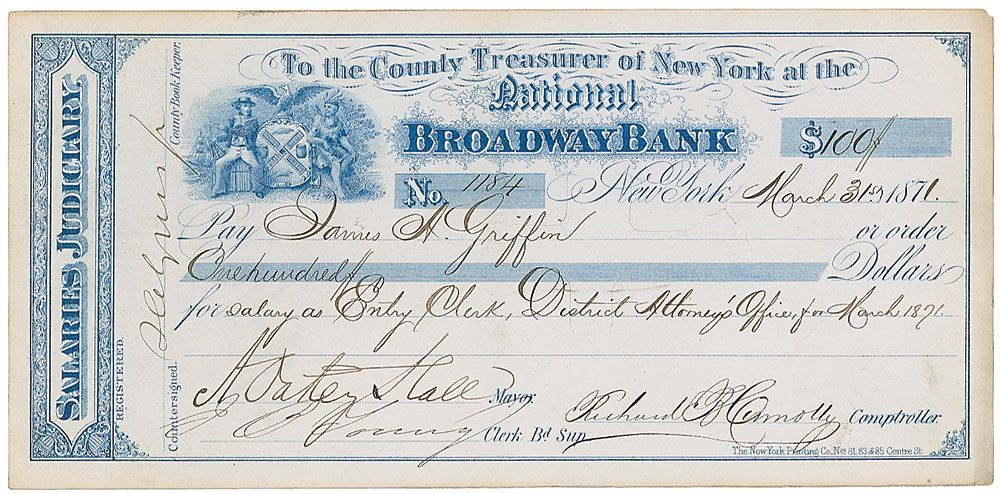 SALARIES JUDICIARY.
REGISTERED.
Countersigned.
County Book Keeper.
To the County Treasurer of New York at the
National
BROADWAY BANK
$100
No. 1184
New York March 31st 1871.
Pay James H. Griffin or order
One hundred Dollars
for salary as Entry Clerk, District Attorney's Office, for March 1871.
A Oakey Hall Mayor
Richard B Connolly Comptroller.
J Young Clerk Bd Sup
The New York Printing Co. Nos 81, 83 & 85 Centre St.